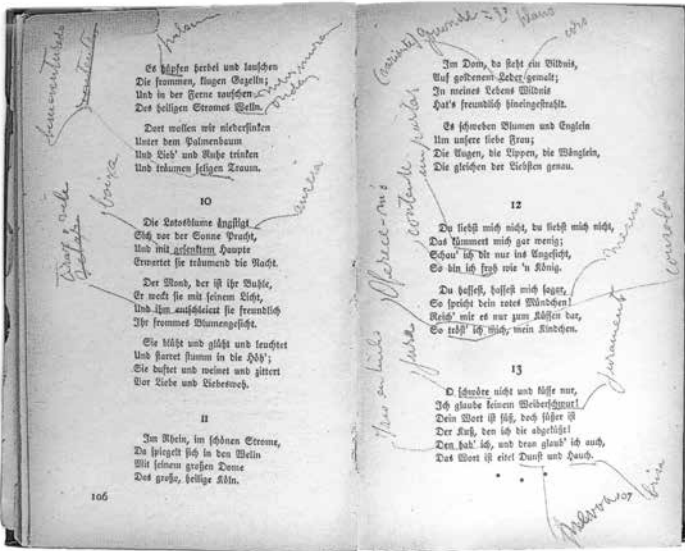 Es hüpfen herbei und lauschen
Die frommen, klugen Gazelln;
Und in der Ferne rauschen
Des heiligen Stromes Welln.
Dort wollen wir niedersinken
Unter dem Palmenbaum
Und Lieb' und Ruhe trinken
Und träumen seligen Traum.
10
Die Lotosblume ängstigt
Sich vor der Sonne Pracht,
Und mit gesenktem Haupte
Erwartet sie träumend die Nacht.
Der Mond, der ist ihr Buhle,
Er weckt sie mit seinem Licht,
Und ihm entschleiert sie freundlich
Ihr frommes Blumengesicht.
Sie blüht und glüht und leuchtet
Und starret stumm in die Höh';
Sie duftet und weinet und zittert
Vor Liebe und Liebesweh.
11
Im Rhein, im schönen Strome,
Da spiegelt sich in den Welln
Mit seinem großen Dome
Das große, heilige Köln.
106
Im Dom, da steht ein Bildnis,
Auf goldenem Leder gemalt;
In meines Lebens Wildnis
Hat's freundlich hineingestrahlt.
Es schweben Blumen und Englein
Um unsere liebe Frau;
Die Augen, die Lippen, die Wänglein,
Die gleichen der Liebsten genau.
12
Du liebst mich nicht, du liebst mich nicht,
Das kümmert mich gar wenig;
Schau' ich dir nur ins Angesicht,
So bin ich froh wie 'n König.
Du hassest, hassest mich sogar,
So spricht dein rotes Mündchen!
Reich' mir es nur zum Küssen dar,
So tröst' ich mich, mein Kindchen.
consolar
13
O schwöre nicht und küsse nur,
Ich glaube keinem Weiberschwur!
Dein Wort ist süß, doch süßer ist
Der Kuß, den ich dir abgeküßt!
Den hab' ich, und dran glaub' ich auch,
Das Wort ist eitel Dunst und Hauch.
jura